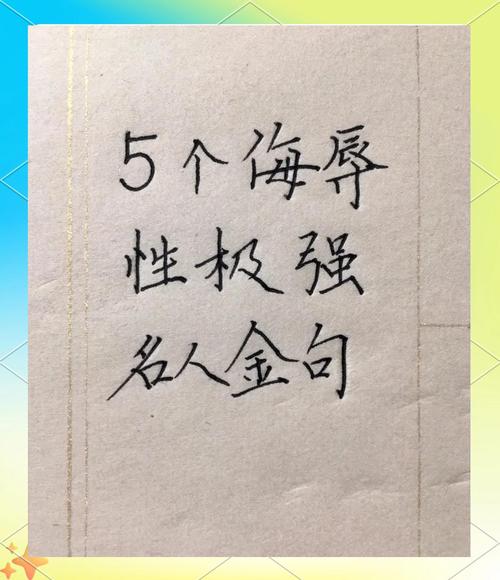 5个侮辱
性极强
名人金句